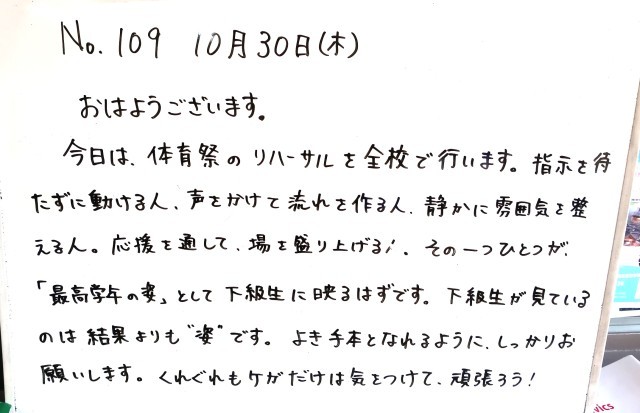 No. 109 10月30日(木)
おはようございます。
今日は、体育祭のリハーサルを全校で行います。指示を待
たずに動ける人、声をかけて流れを作る人、静かに雰囲気を整
える人。応援を通して、場を盛り上げる人。その一つひとつが、
「最高学年の姿」として下級生に映るはずです。下級生が見ている
のは結果よりも"姿"です。よき手本となれるように、しっかりお
願いします。くれぐれもケガだけは気をつけて、頑張ろう!
vics